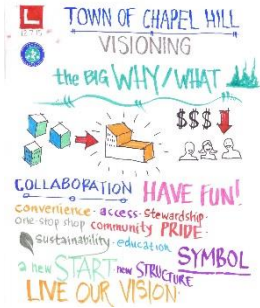 TOWN OF CHAPEL HILL
VISIONING
the BIG WHY/WHAT
$$$
COLLABORATION HAVE FUN!
convenience · access · stewardship ·
one stop shop community PRIDE ·
sustainability · education
SYMBOL
a new START · new STRUCTURE
LIVE OUR VISION